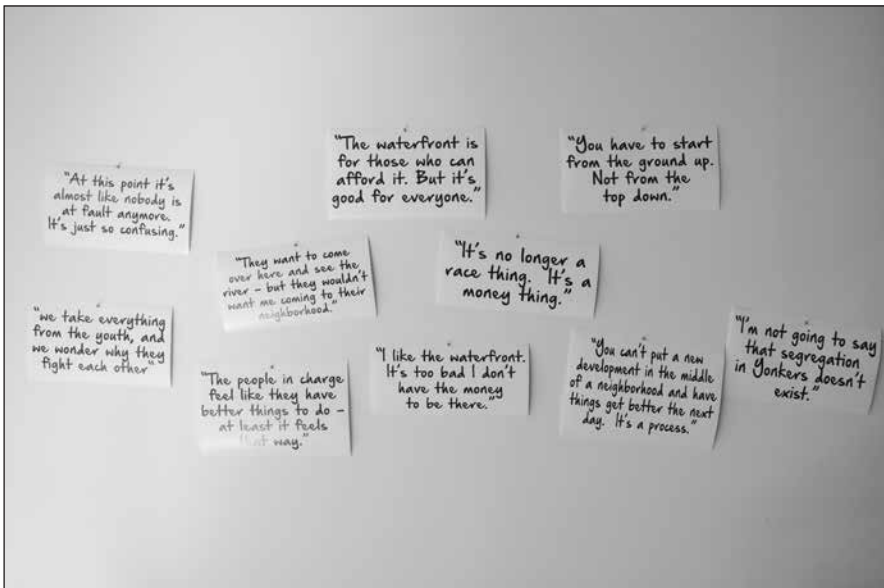 "At this point it's
almost like nobody is
at fault anymore.
It's just so confusing."
"The waterfront is
for those who can
afford it. But it's
good for everyone."
"You have to start
from the ground up.
Not from the
top down."
"They want to come
over here and see the
river – but they wouldn't
want me coming to their
neighborhood."
"It's no longer a
race thing. It's a
money thing."
"we take everything
from the youth, and
we wonder why they
fight each other"
"The people in charge
feel like they have
better things to do –
at least it feels
that way."
"I like the waterfront.
It's too bad I don't
have the money
to be there."
"You can't put a new
development in the middle
of a neighborhood and have
things get better the next
day. It's a process."
"I'm not going to say
that segregation
in Yonkers doesn't
exist."